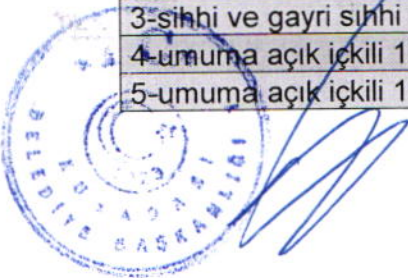 3-sıhhi ve gayri sıhhi
4-umuma açık içkili 1
5-umuma açık içkili 1
KUŞADASI
BELEDİYE BAŞKANLIĞI